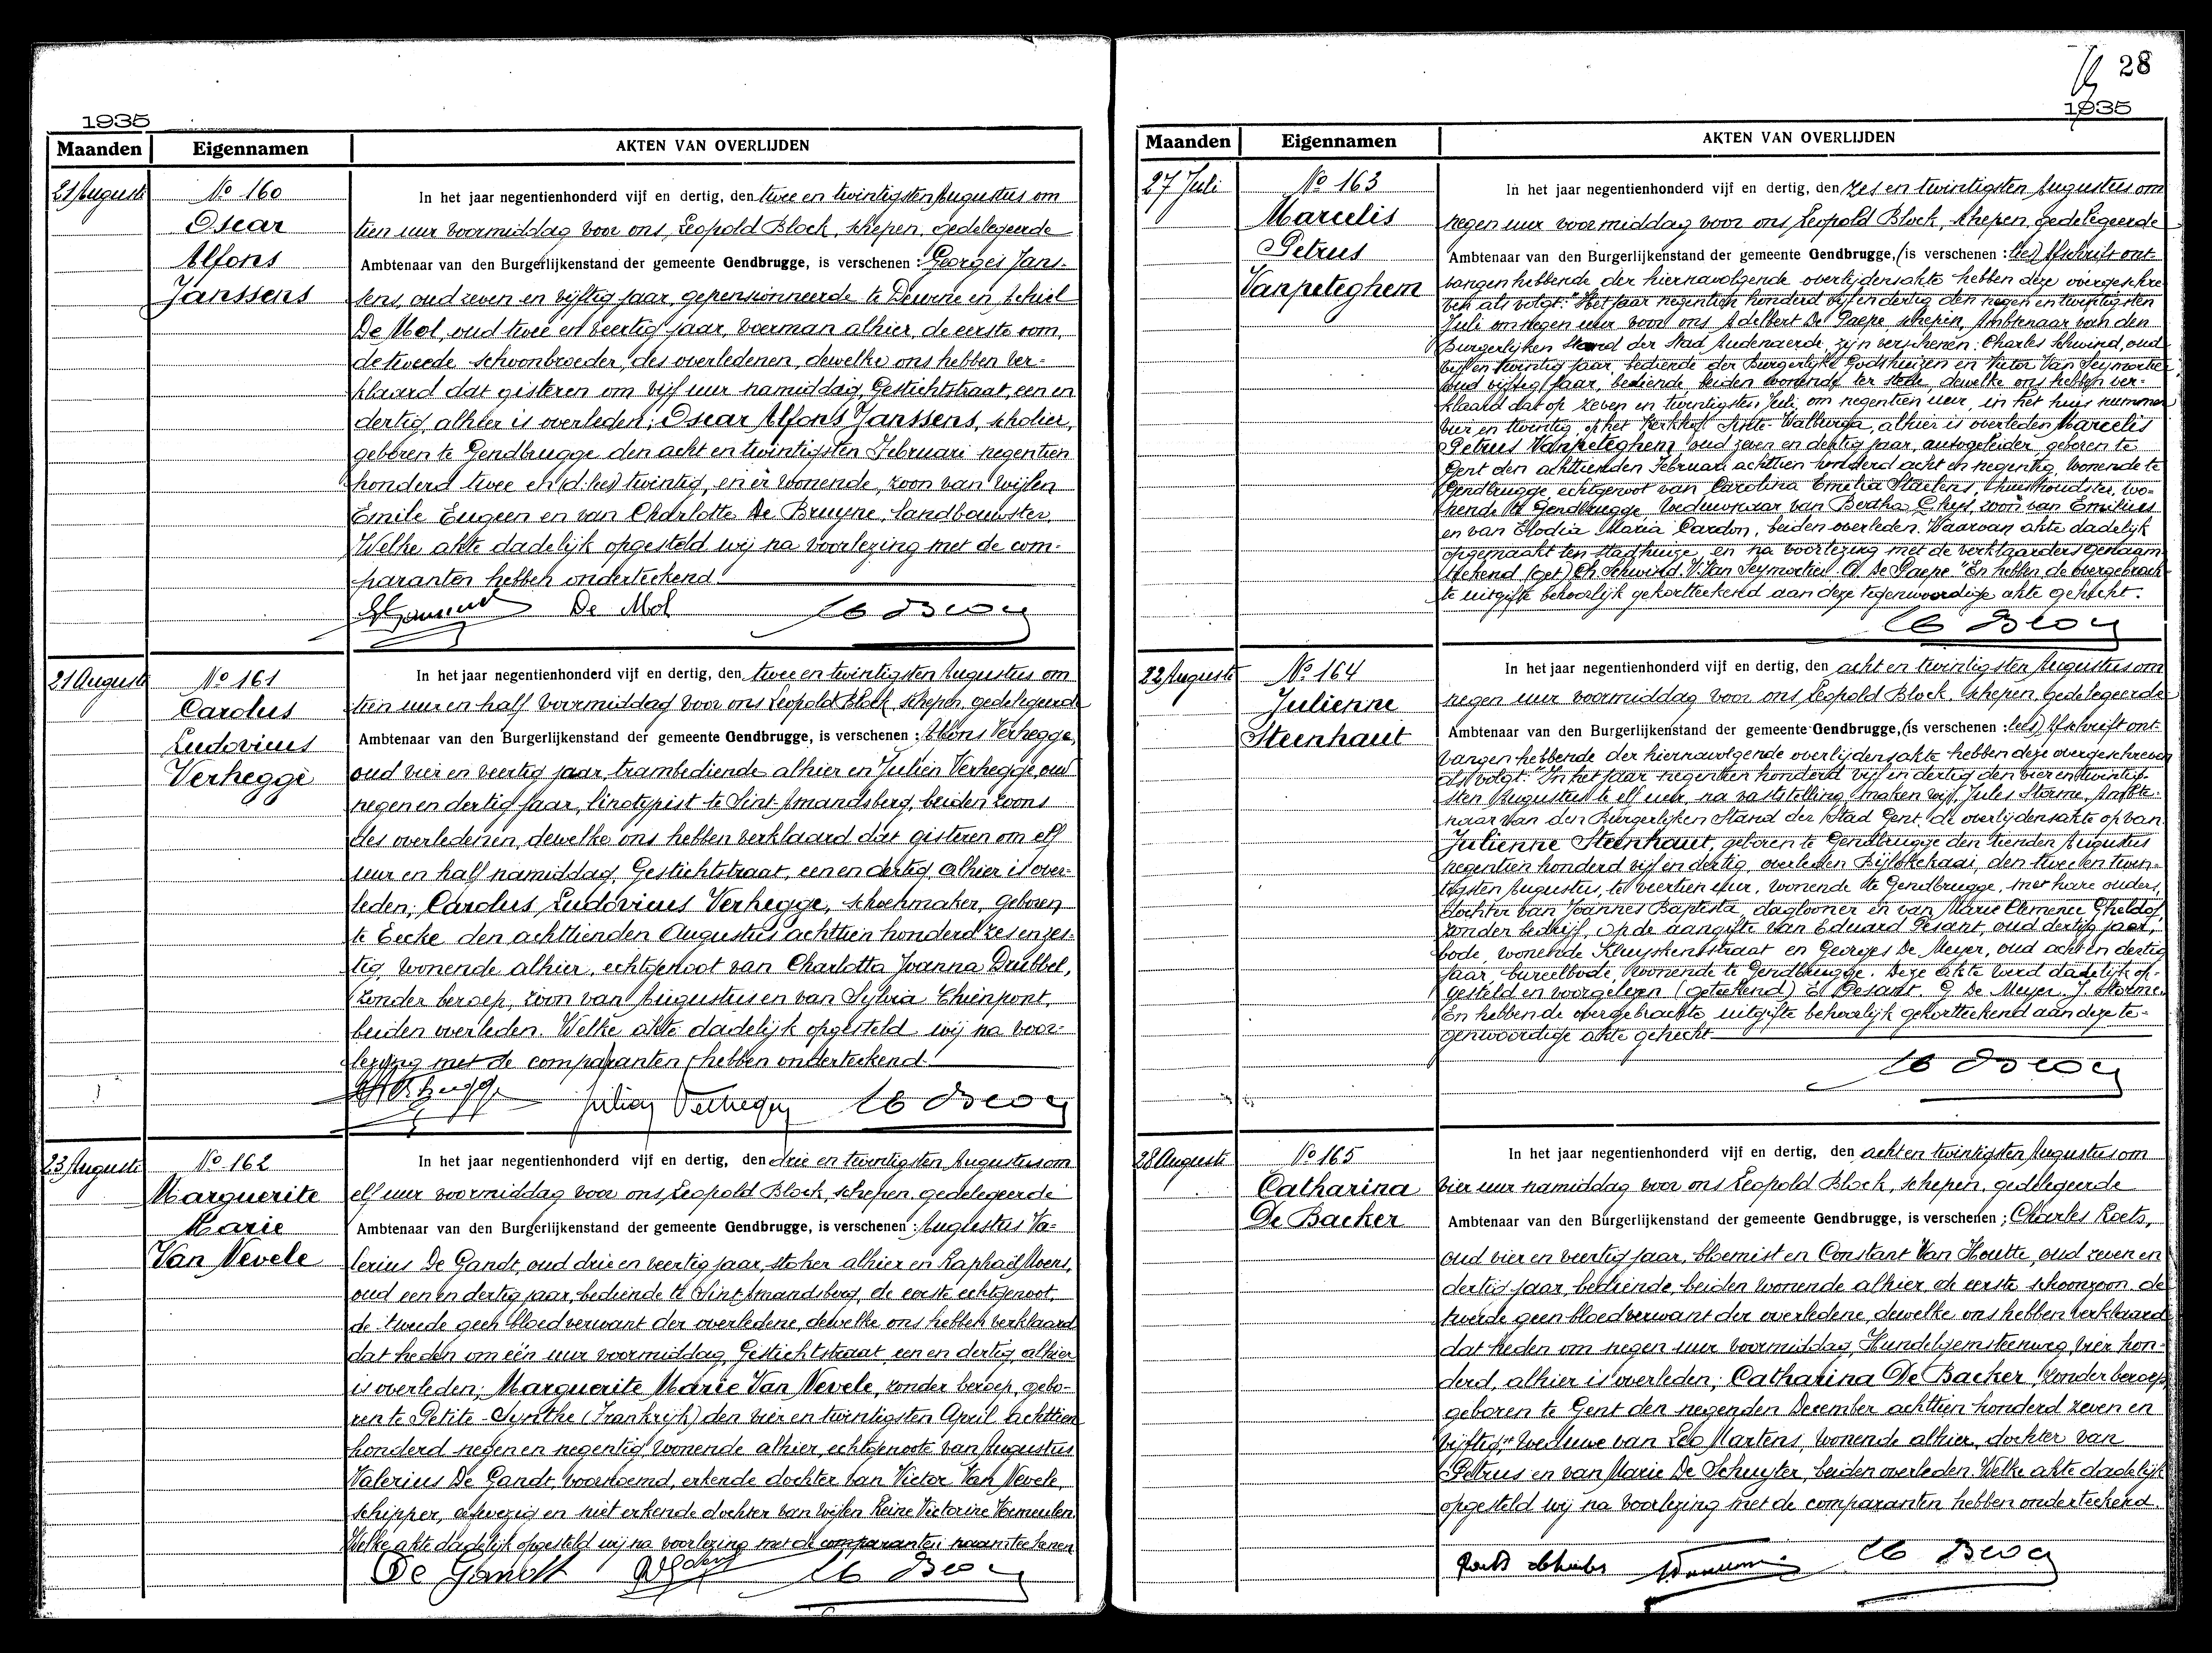 1935
Maanden Eigennamen AKTEN VAN OVERLIJDEN
21 Augusti
No 160
Oscar
Alfons
Janssens
In het jaar negentienhonderd vijf en dertig, den twee en twintigsten Augustus om
tien uur voormiddag voor ons, Leopold Block, schepen, gedelegeerde
Ambtenaar van den Burgerlijkenstand der gemeente Gendbrugge, is verschenen: Georges Jans-
sens, oud zeven en vijftig jaar, gepensionneerde te Deurne en
De Mol, oud twee en veertig jaar, voerman alhier, de eerste oom,
de tweede schoonbroeder, des overledenen, dewelke ons hebben ver-
klaard dat gisteren om vijf uur namiddag, Gestichtstraat, een en
dertig, alhier is overleden; Oscar Alfons Janssens, scholier,
geboren te Gendbrugge den acht en twintigsten Februari negentien
honderd twee en (d.lees) twintig, en er wonende, zoon van wijlen
Emile Eugeen en van Charlotte De Bruyne, landbouwster.
Welke akte dadelijk opgesteld wij na voorlezing met de com-
paranten hebben onderteekend.
De Mol
21 Augusti
No 161
Carolus
Ludovicus
Verhegge
In het jaar negentienhonderd vijf en dertig, den twee en twintigsten Augustus om
tien uur en half voormiddag voor ons Leopold Block, schepen, gedelegeerde
Ambtenaar van den Burgerlijkenstand der gemeente Gendbrugge, is verschenen: Alfons Verhegge,
oud vier en veertig jaar, trambediende alhier en Julien Verhegge, oud
negen en dertig jaar, linotypist te Sint-Amandsberg, beiden zoons
des overledenen, dewelke ons hebben verklaard dat gisteren om elf
uur en half namiddag, Gestichtstraat, een en dertig, alhier is over-
leden; Carolus Ludovicus Verhegge, schoenmaker, geboren
te Eecke den achttienden Augustus achttien honderd zes en zes-
tig, wonende alhier, echtgenoot van Charlotta Joanna Drubbel,
zonder beroep, zoon van Augustus en van Sylvia Chienpont,
beiden overleden. Welke akte dadelijk opgesteld wij na voor-
lezing met de comparanten hebben onderteekend.
23 Augusti
No 162
Marguerite
Marie
Van Nevele
In het jaar negentienhonderd vijf en dertig, den drie en twintigsten Augustus om
elf uur voormiddag voor ons, Leopold Block, schepen, gedelegeerde
Ambtenaar van den Burgerlijkenstand der gemeente Gendbrugge, is verschenen: Augustus Va-
lerius De Gandt, oud drie en veertig jaar, stoker alhier en Raphaël Moens,
oud een en dertig jaar, bediende te Sint-Amandsberg, de eerste echtgenoot,
de tweede geen bloedverwant der overledene, dewelke ons hebben verklaard
dat heden om één uur voormiddag, Gestichtstraat een en dertig, alhier
is overleden; Marguerite Marie Van Nevele, zonder beroep, gebo-
ren te Petite-Synthe (Frankrijk) den vier en twintigsten April achttien
honderd negen en negentig, wonende alhier, echtgenoote van Augustus
Valerius De Gandt, voornoemd, erkende dochter van Victor Van Nevele,
schipper, afwezig en niet erkende dochter van wijlen Reine Victorine Vermeulen.
Welke akte dadelijk opgesteld wij na voorlezing met de comparanten naamteekenen
De Gandt
28
1935
Maanden Eigennamen AKTEN VAN OVERLIJDEN
27 Juli
No 163
Marcelis
Petrus
Vanpeteghem
In het jaar negentienhonderd vijf en dertig, den zes en twintigsten Augustus om
negen uur voormiddag voor ons, Leopold Block, schepen, gedelegeerde
Ambtenaar van den Burgerlijkenstand der gemeente Gendbrugge, (is verschenen: lees) Afschrift ont-
vangen hebbende der hiernavolgende overlijdensakte hebben deze overgeschre-
ven als volgt: "Het jaar negentien honderd vijf en dertig den negen en twintigsten
Juli om negen uur voor ons Adelbert De Paepe, schepen, Ambtenaar van den
Burgerlijken Stand der Stad Audenaerde, zijn verschenen: Charles Schwind, oud
vijf en twintig jaar, bediende der Burgerlijke Godshuizen en Victor Van Seymortier
oud vijftig jaar, bediende, beiden wonende ter stede, dewelke ons hebben ver-
klaard dat op zeven en twintigsten Juli, om negentien uur, in het huis nummer
vier en twintig, op het Kerkhof Sinte-Walburga, alhier is overleden Marcelis
Petrus Vanpeteghem, oud zeven en dertig jaar, autogeleider, geboren te
Gent den achttienden Februari achttien honderd acht en negentig, wonende te
Gendbrugge, echtgenoot van Carolina Emelia Staelens, huishoudster, wo-
nende te Gendbrugge, weduwnaar van Bertha Ghys, zoon van Emilius
en van Elodia Maria Cardon, beiden overleden. Waarvan akte dadelijk
opgemaakt ten stadhuize, en na voorlezing met de verklaarders genaam-
teekend (get.) Ch. Schwind. V. Van Seymortier. A. De Paepe." En hebben de overgebrach-
te uitgifte behoorlijk gekortteekend aan deze tegenwoordige akte gehecht.
22 Augusti
No 164
Julienne
Steenhaut
In het jaar negentienhonderd vijf en dertig, den acht en twintigsten Augustus om
negen uur voormiddag voor ons Leopold Block, schepen, gedelegeerde
Ambtenaar van den Burgerlijkenstand der gemeente Gendbrugge, (is verschenen: lees) Afschrift ont-
vangen hebbende der hiernavolgende overlijdensakte hebben deze overgeschreven
als volgt: "In het jaar negentien honderd vijf en dertig den vier en twintig-
sten Augustus te elf uur, na vaststelling, maken wij, Jules Storme, Ambte-
naar van den Burgerlijken Stand der Stad Gent de overlijdensakte op van
Julienne Steenhaut, geboren te Gendbrugge den tienden Augustus
negentien honderd vijf en dertig, overleden Bijlokekaai, den twee en twin-
tigsten Augustus, te veertien uur, wonende te Gendbrugge, met hare ouders,
dochter van Joannes Baptista, daglooner en van Marie Clemence Gheldof,
zonder bedrijf, op de aangifte van Eduard Pesant, oud dertig jaar,
bode, wonende Kluyskensstraat en Georges De Meyer, oud acht en dertig
jaar, bureelbode, wonende te Gendbrugge. Deze akte werd dadelijk op-
gesteld en voorgelezen (geteekend) E. Pesant. G. De Meyer. J. Storme.
En hebben de overgebrachte uitgifte behoorlijk gekortteekend aan deze te-
genwoordige akte gehecht
28 Augusti
No 165
Catharina
De Backer
In het jaar negentienhonderd vijf en dertig, den acht en twintigsten Augustus om
vier uur namiddag voor ons Leopold Block, schepen, gedelegeerde
Ambtenaar van den Burgerlijkenstand der gemeente Gendbrugge, is verschenen; Charles Roets,
oud vier en veertig jaar, bloemist en Constant Van Houtte, oud zeven en
dertig jaar, bediende, beiden wonende alhier, de eerste schoonzoon, de
tweede geen bloedverwant der overledene, dewelke ons hebben verklaard
dat heden om negen uur voormiddag, Hundelgemsteenweg, vier hon-
derd, alhier is overleden; Catharina De Backer, zonder beroep,
geboren te Gent den negenden December achttien honderd zeven en
vijftig, weduwe van Leo Martens, wonende alhier, dochter van
Petrus en van Marie De Schuyter, beiden overleden. Welke akte dadelijk
opgesteld wij na voorlezing met de comparanten hebben onderteekend.